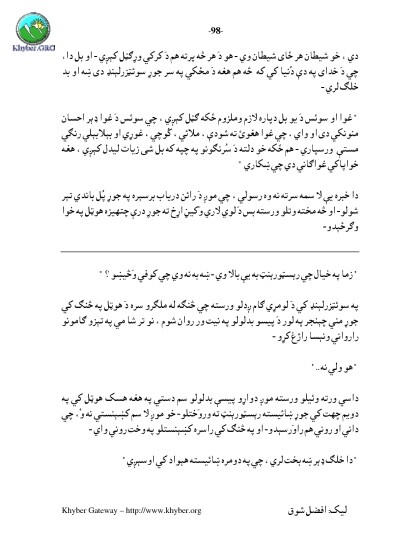 -98-
Khyber.ORG
دي ، خو شيطان هر ځای شيطان وي - هو دَ هر څه پرته هم دَ کرکې وړ ګڼل کېږي - او بل دا ،
چي دَ خدای په دې دُنيا کي که څه هم هغه دَ مځکي په سر جوړ سوئټزرلېنډ دی ښه او بد
خلګ لري-
"غوا او سوئس دَ يو بل دپاره لازم وملزوم څکه ګڼل کېږي ، چي سوئس دَ غوا ډېر احسان
منونکي دی او وای ، چي غوا هغوئ ته شودې ، ملائي ، کُوچي ، غوړي او بېلابېلي رنګي
مستې ورسپاري - هم څکه خو دلته دَ سُرنګونو په چپه که بل شی زيات ليدل کېږي ، هغه
خوا پاکي غواګاني دي چي ښکاري "
دا خبره يې لا سمه سرته نه وه رسولې ، چي موږ دَ رائن درياب برسېره په جوړ پُل باندي تېر
شولو - او څه مخته وتلو ورسته بس دَ لوی لاري وکيڼ اړخ ته جوړ درې چتهيزه هوټل په خوا
وګرځېدو-
"زما په خيال چي رېسټورېنټ به يې بالا وي - ښه به نه وي چي کوفي وَڅېښو ؟ "
په سوئټزرلېنډ کي دَ لومړي ګام ږدلو ورسته چي څنګه له ملګرو سره دَ هوټل په څنګ کي
جوړ مني چېنجر په لور دَ پيسو بدلولو په نيت ور روان شوم ، نو تر شا مي په تېزو ګامونو
راروانې ونېسا راژغ کړو-
"هو ولي نه.."
داسي ورته وئيلو ورسته موږ دواړو پيسې بدلولو سم دستي په هغه هسک هوټل کي په
دويم چهت کي جوړ ښائيسته رېسټورېنټ ته وروختلو - خو موږ لا سم کښېنستي نه وُ ، چي
داني او روني هم راورسېدو - او په څنګ کي راسره کښېنستلو په وخت روني وای -
"دا خلګ ډېر ښه بخت لري ، چي په دومره ښائيسته هېواد کي اوسېږي"
Khyber Gateway – http://www.khyber.org
ليک: افضل شوق